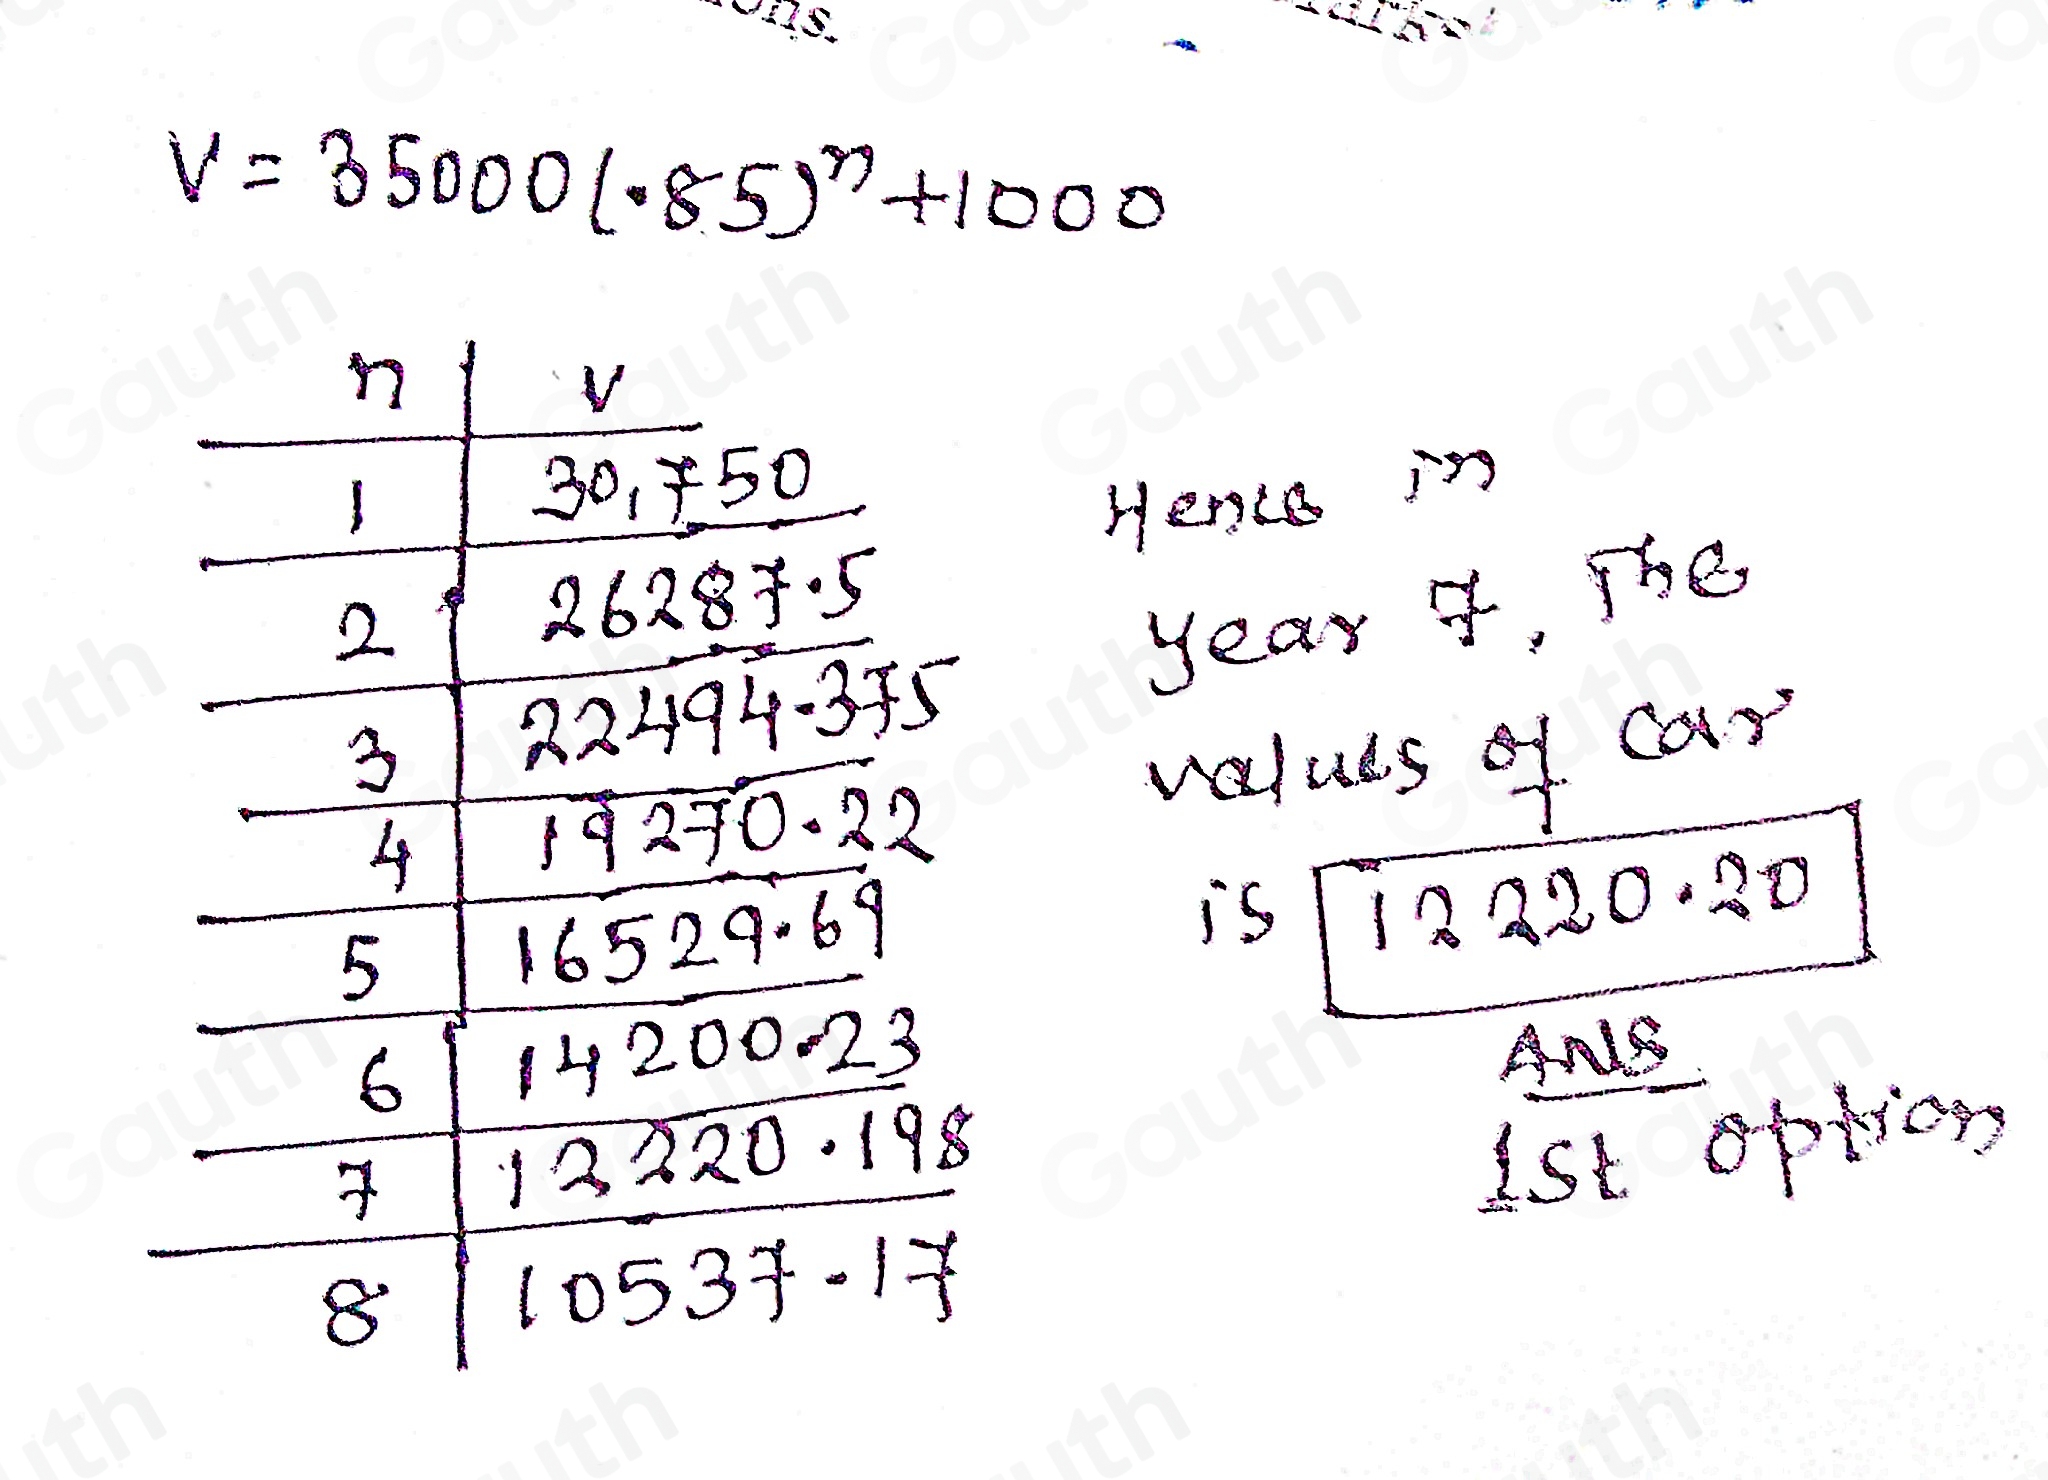 V = 35000(.85)ⁿ+1000
n | v
1 | 30,750
2 | 26287.5
3 | 22494.375
4 | 19270.22
5 | 16529.69
6 | 14200.23
7 | 12220.198
8 | 10537.17
Hence in
year 7, The
values of car
is 12220.20
ANS
1st option